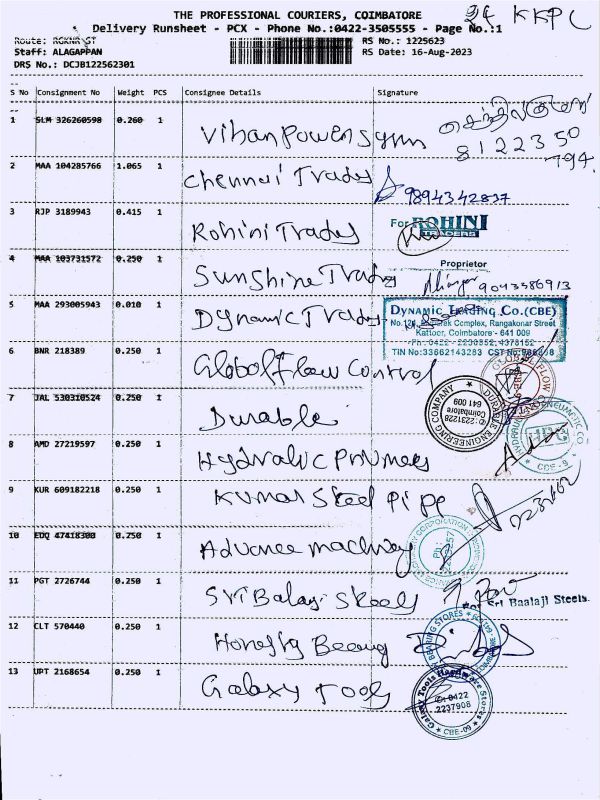 24 KKPC
THE PROFESSIONAL COURIERS, COIMBATORE
Delivery Runsheet - PCX - Phone No.:0422-3505555 - Page No.:1
Route: RGKNR ST
RS No.: 1225623
Staff: ALAGAPPAN
RS Date: 16-Aug-2023
DRS No.: DCJB122562301
S No Consignment No Weight PCS Consignee Details Signature
1 SLM 326260598 0.260 1
செந்தில்குமார்
8122350
794.
2 MAA 104285766 1.065 1 Chennai Trades 9894342837
3 RJP 3189943 0.415 1 Rohini Trades
For ROHINI
TRADERS
Proprietor
4 MAA 103731572 0.250 1 Sunshine Trades 9043586913
5 MAA 293005943 0.010 1 Dynamic Trades
DYNAMIC TRADING CO.(CBE)
Complex, Rangakonar Street
Kattoor, Coimbatore - 641 009
Ph.:0422 - 2230352, 4378152
TIN No:33662143283 CST No:
6 BNR 218389 0.250 1 Global Flow Control
GLOBAL FLOW
7 JAL 530310524 0.250 1 Durable
DURABLE ENGINEERING COMPANY
✆:2231228
Coimbatore
641 009
8 AMD 27219597 0.250 1 Hydralic
CBE-9
9 KUR 609182218 0.250 1 Kumar Steel Pipe
10 EDQ 47418300 0.250 1 Advance machinery
CORPORATION
11 PGT 2726744 0.250 1 Sri Balaji Steels
For Sri Baalaji Steels.
12 CLT 570440 0.250 1
BEARING STORES
13 UPT 2168654 0.250 1 Galaxy Tools
Galaxy Tools Hardware Stores
✆:0422
2237908
CBE-09